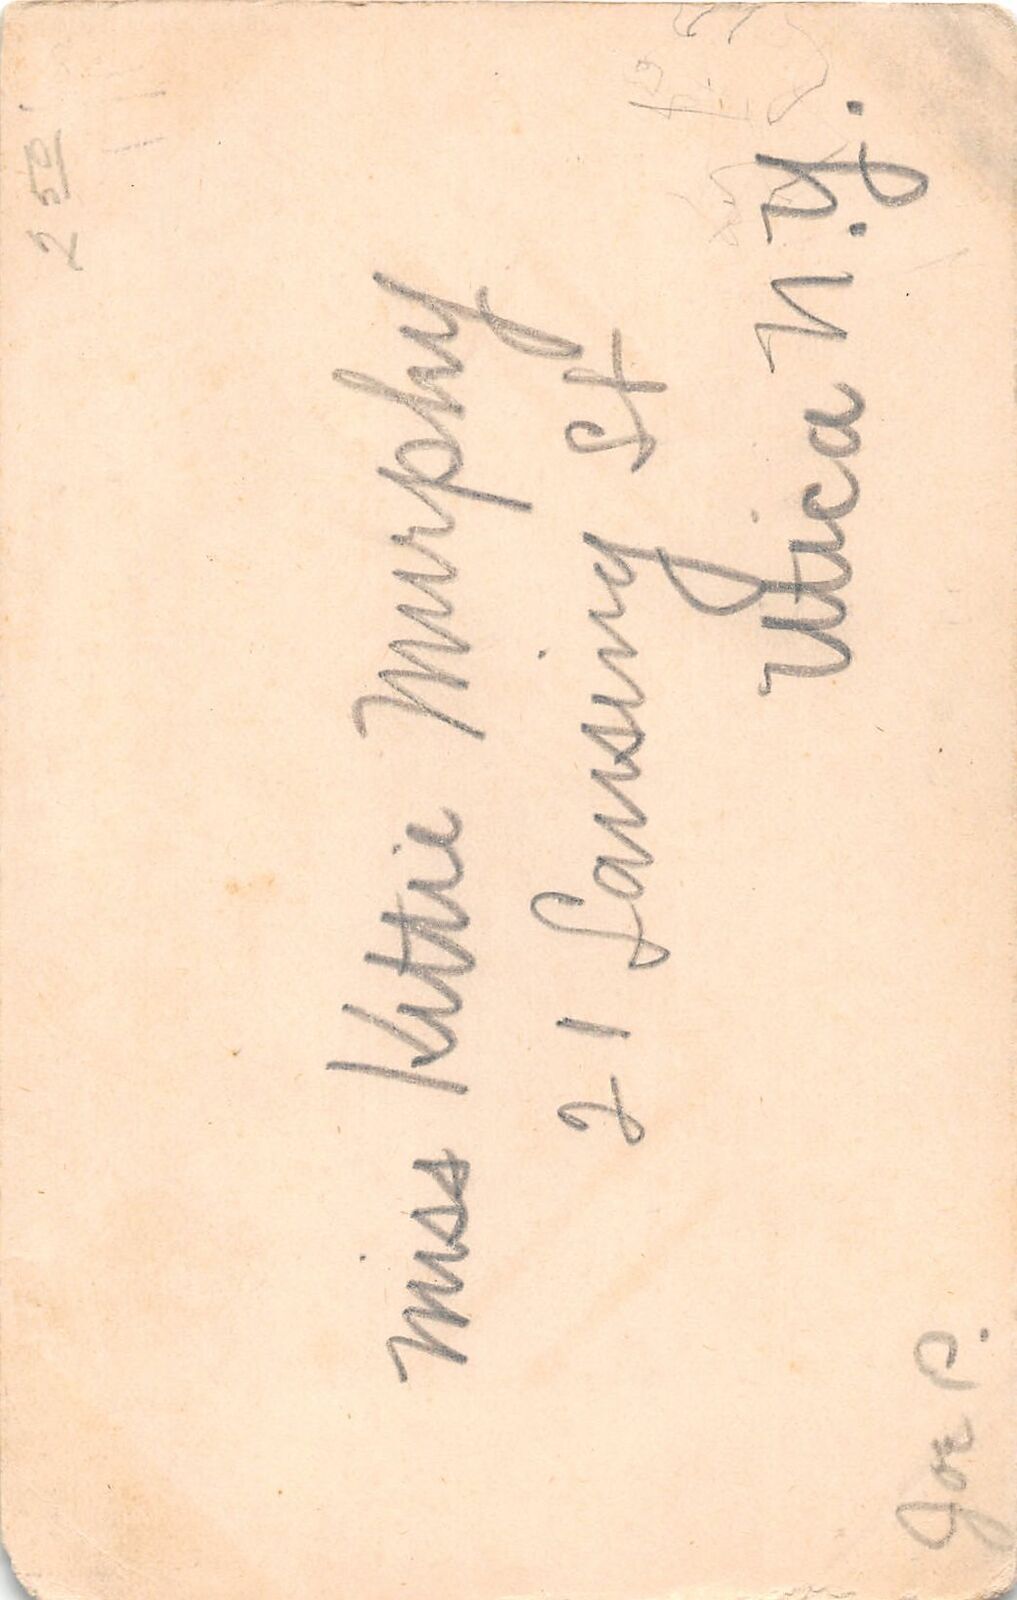 2 50
Miss Kittie Murphy
21 Lansing St
Utica N.Y.
Joe P.